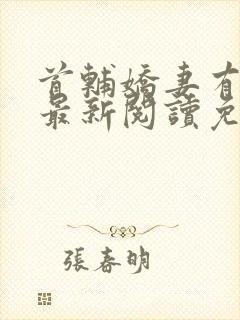 首輔嬌妻有
最新閱讀免
張春明